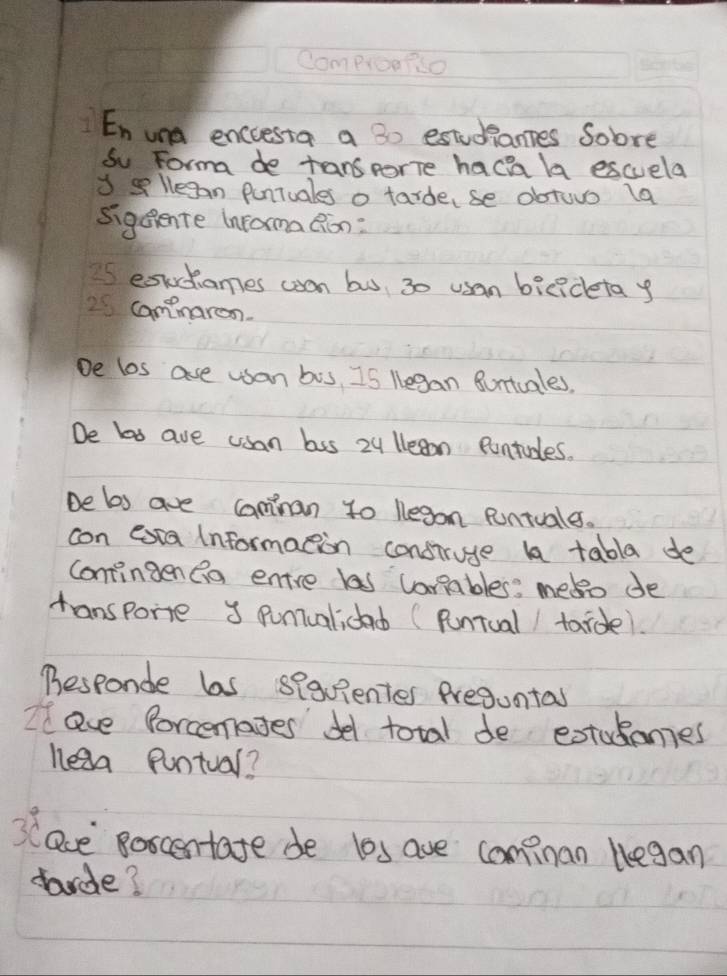 Comproerio
1 En una encuesta a 80 estudiantes Sobre
Su Forma de transporte hacia la escuela
y si llegan puntuales o tarde, se obtuvo la
siguiente informacion:
25 estudiantes usan bus, 30 usan bicicleta y
25 caminaron.
De los que usan bus, 15 llegan Puntuales.
De los que usan bus 24 llegan Puntules.
De los que caminan 10 llegan Puntuales.
con esta informacion construye la tabla de
contingencia entre las variables: medio de
transporte y Puntualidad (Puntual / tarde).
Responde las siguientes Preguntas
2¿ Que Porcentajes del total de estudiantes
llega Puntual?
3¿ Que Porcentaje de los que caminan llegan
tarde?